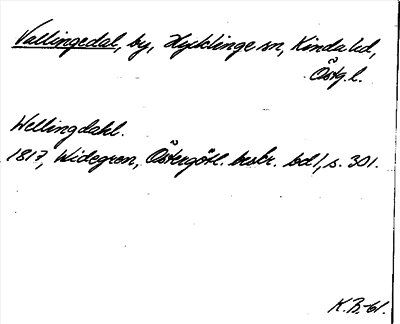 Vallingedal, by, Hycklinge sn, Kinda hd,
Östg. l.
Wellingdahl.
1817, Widegren, Östergötl. beskr. bd 1, s. 301.
K.B-bl.